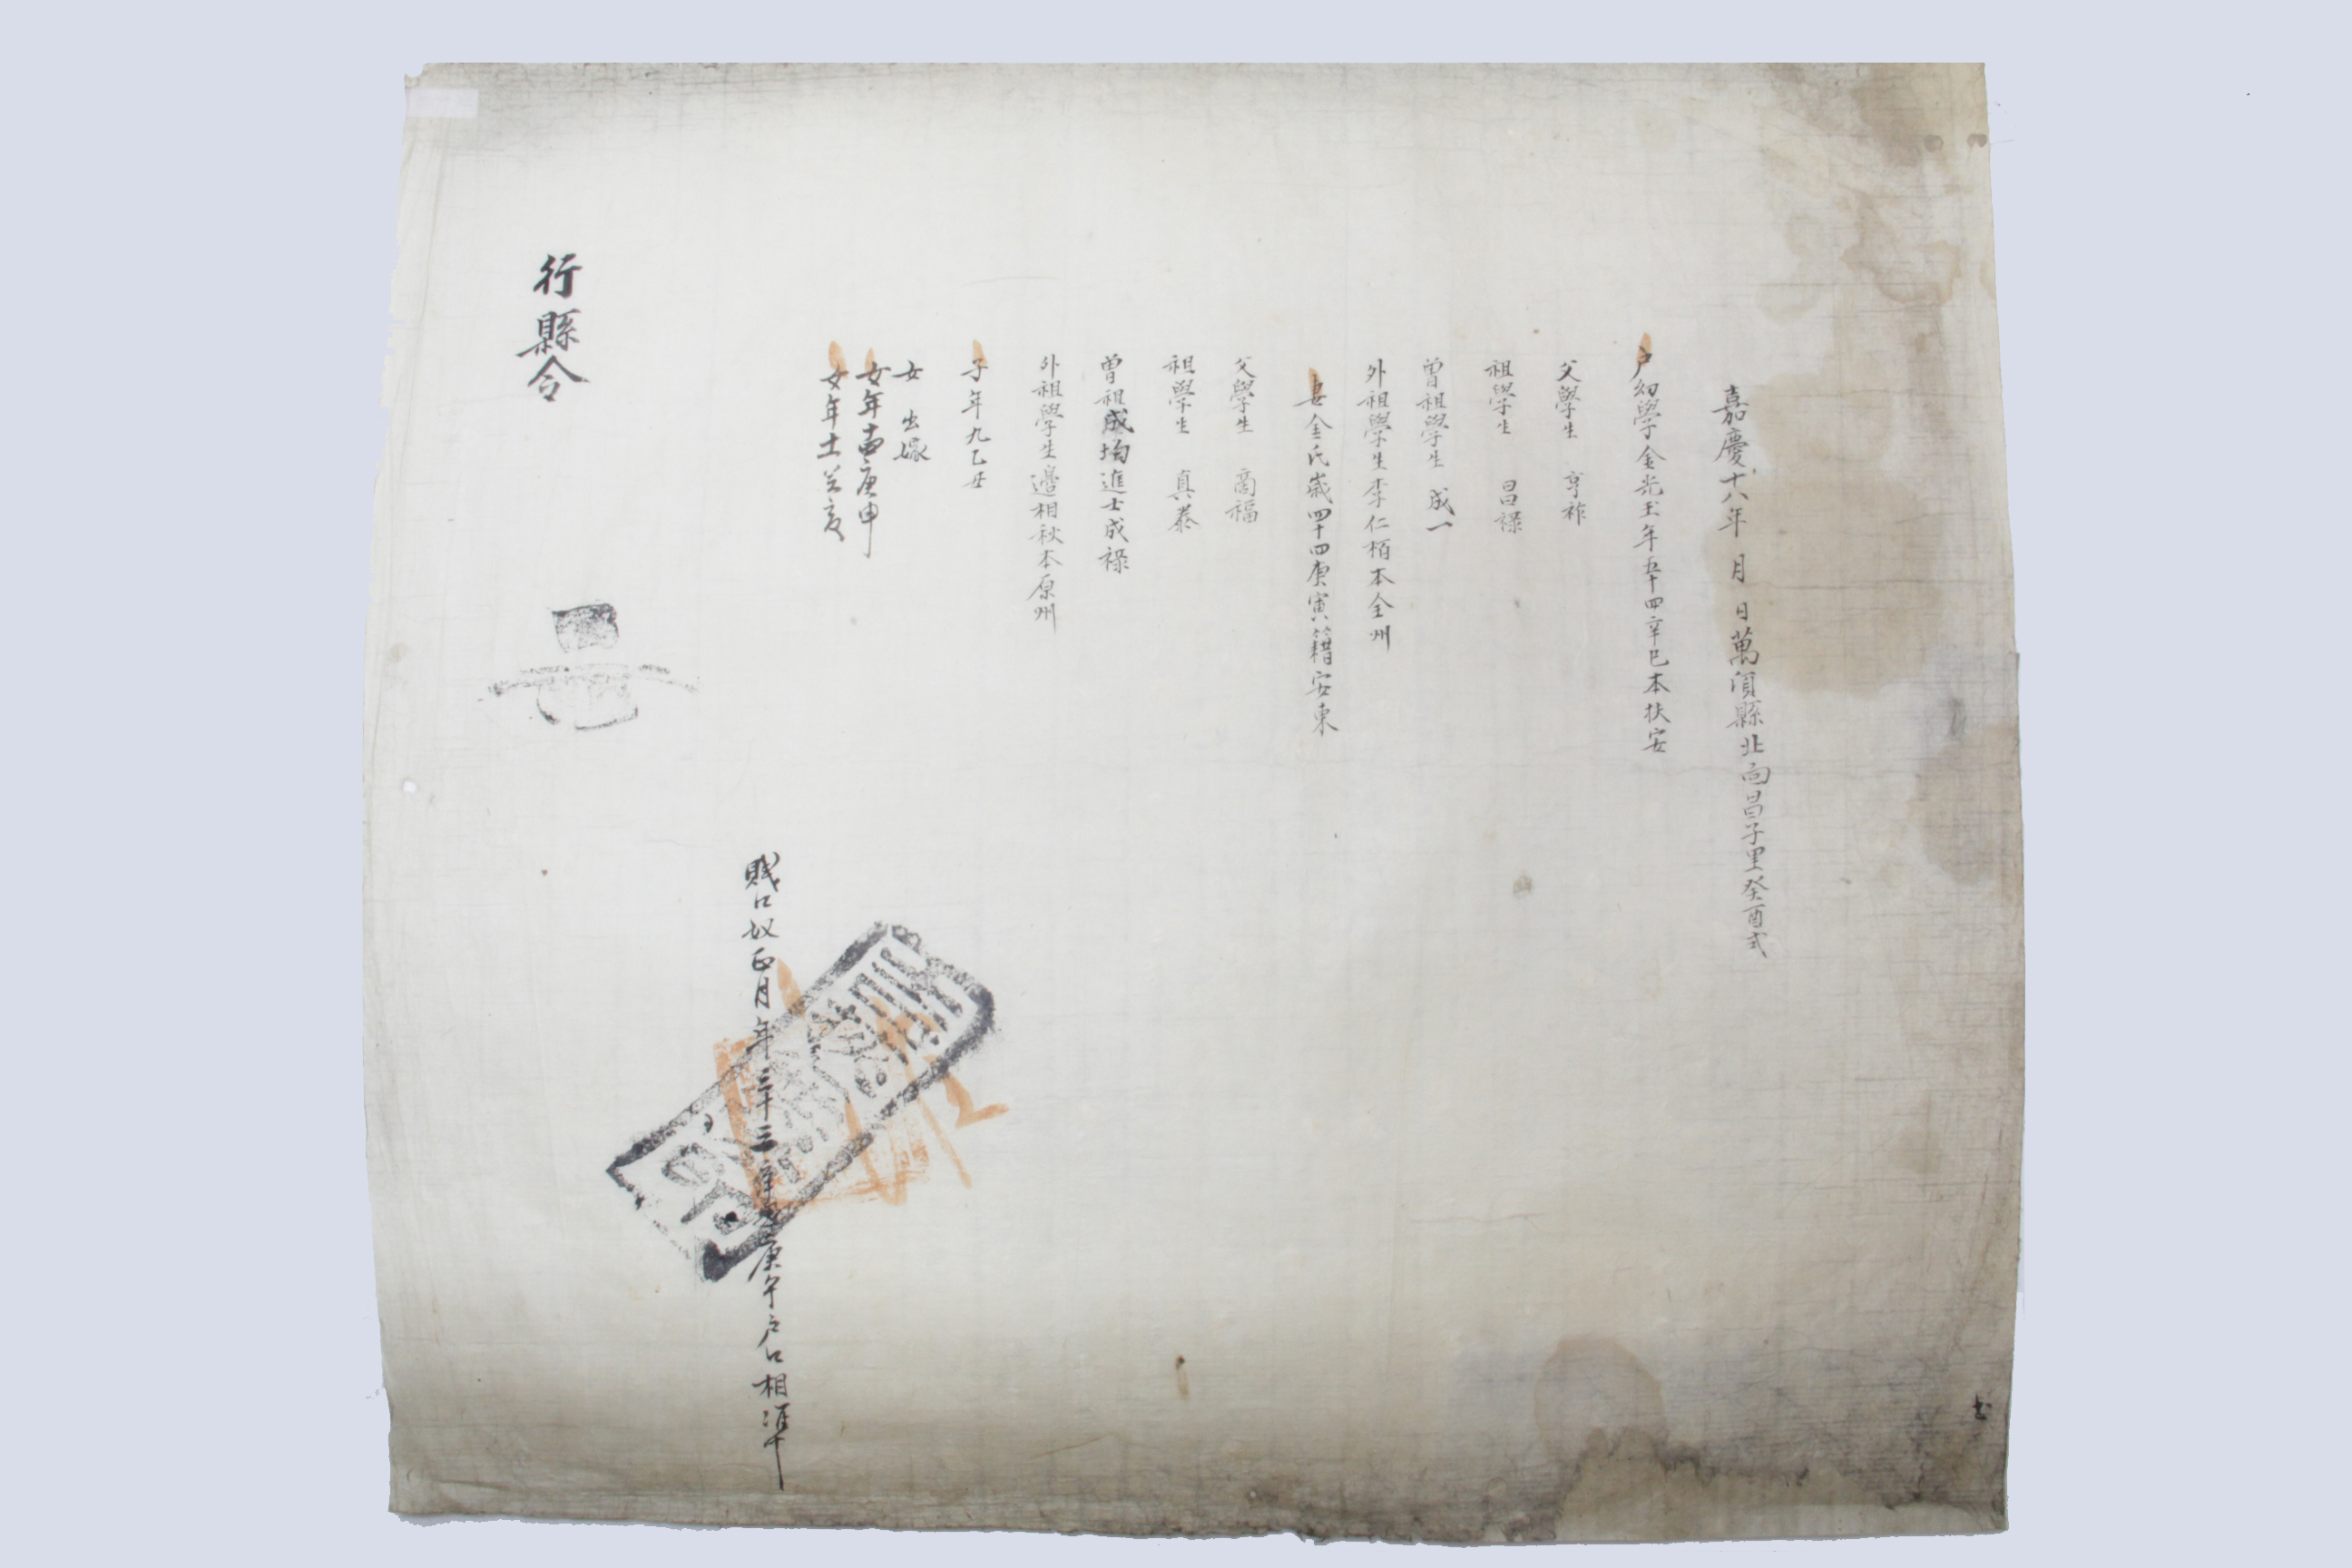 嘉慶十八年 月 日萬頃縣北面昌子里癸酉式
戶幼學金光玉年五十四辛巳本扶安
父學生 亨祚
祖學生 昌祿
曾祖學生 成一
外祖學生李仁栢本全州
妻金氏歲四十四庚寅籍安東
父學生 商福
祖學生 真泰
曾祖成均進士成祿
外祖學生邉相秋本原州
子年九乙丑
女 出嫁
女年 庚申
女年十一癸亥
賎口奴正月年三十三 庚午戶口相準
行縣令